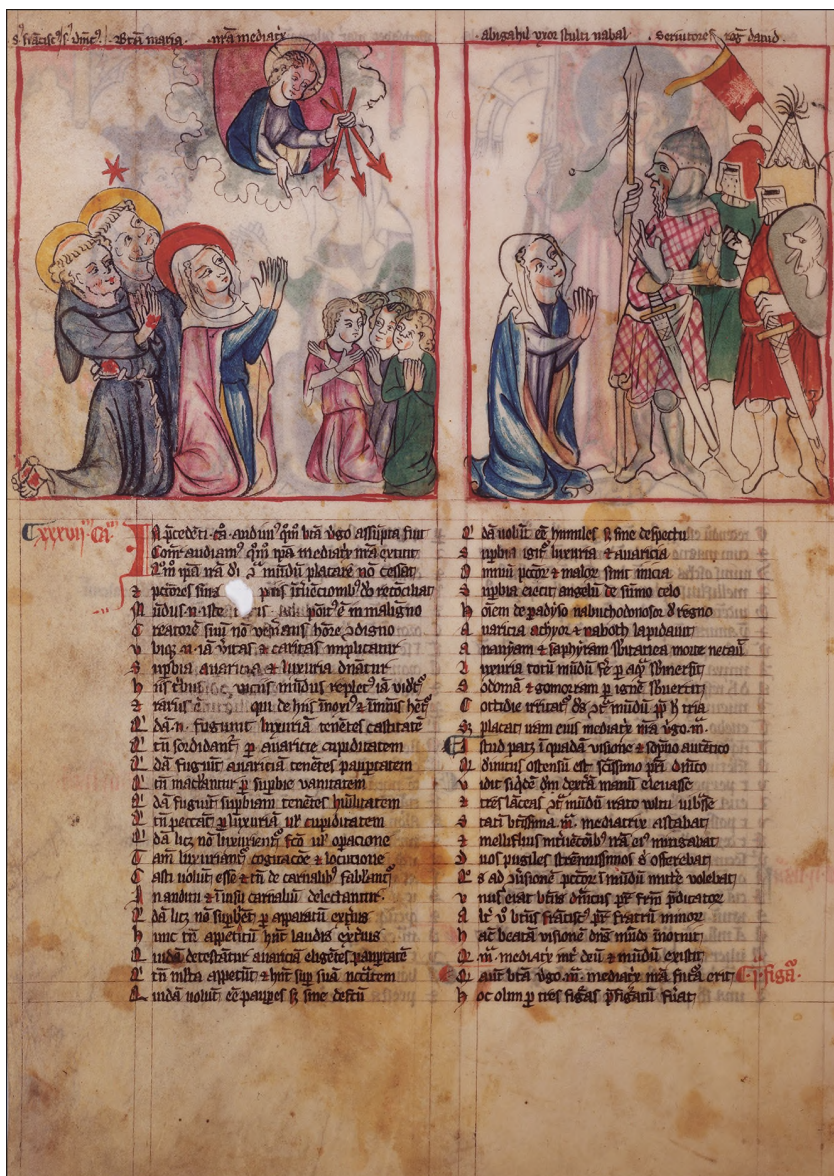 s' francisc' s' dnic' · Bta maria · nra mediatx
· abigahil uxor stulti nabal · Seruitores reg dauid ·
xxxvij · ca
In p̄cedēti · ca · audiuim' qm̄ btā v̄go assūpta fuit
Com̄t audiam' qm̄ ip̄a mediatx nr̄a extitit
Qm̄ ip̄a irā di 9̄ mūdū placare nō cessat
z pctōres sūra p̄tis īt̄uēcionib' do recōciliat
Mūdus n · iste poit' ē in maligno
Creatorē suū nō veñans hōre 9digno
vbiq m · ia v̄itas z caritas īmplicatur
Supbia auaricia z luxuria dn̄atur
his vicijs mūdus replet' ia vidt'
z rari' ē qui de hijs īnoxi' z īmuis het'
Qi'dā · n · fugiunt luxuriā tenētes castitatē
Qi' tn̄ sordidant' p̄ auaricie cupiditatem
Qi'dā fugiunt auariciā tenētes paup̄tatem
Qi' tn̄ mac̄lantur p̄ supbie vanitatem
Qi'dā fugiūt supbiam tenētes hu̅ilitatem
Qi' tn̄ peccāt p̄ luxuriā ul' cupiditatem
Qi'dā lic̄z nō luxurient' fcō ul' op̄acione
Tam̄ luxuriant' cogitacōe z locutione
Casti volūt esse z tn̄ de carnalib' fablāt'
In auditu z ī uisu carnaliū delectantur ·
Qi'dā lic̄z nō supbiēt p̄ apparatū ext̄ius
hunc tn̄ appetitū hn̄t laudis ext̄ius
Quidā detestātur auariciā eligētes paup̄tatē
Qi' tn̄ mlta appetūt z hn̄t sup̄ suā nc̄c̄itatem
Quidā volūt eē paup̄es sz sine defcū
Qi'dā volūt eē humiles sz sine despectu
Supbia igit' luxuria z auaricia
Omniū pctōr z malor sunt inicia
Supbia eiecit angelū de sūmo celo
hoīem de padyso nabuchodonosor d regno
Auaricia achyor z naboth lapidauit
Ananyam z saphyram sbitanea morte necauit
Luxuria totū mūdū fe p̄ aq̄ sbmersit
Sodomā z gomorram p̄ ignē sbuertit
Cottidie irritat' ds 9̄ mūdū p̄ h tria
Sz placat iram eius mediatx nr̄a v̄go · m ·
Istud patz ī quadā visione z sopno autētico
Quē dinitus ostensū est sc̄issimo pri dn̄ico
vidit siqdē dm̄ dextrā manū eleuasse
z tres lāceas 9̄ mūdū irato wltu uib̄sse
Stati btissima · m · mediatrix astabat
z mellifluis īt̄uētōib' irā ei' mitigabat
Duos pugiles strēnuissimos ei offerebat
Qs ad 9uisionē pctor ī mūdū mitte volebat
vnus erat btus dn̄icus pr frm̄ p̄dicator
Alt' v̄ btus frācisc' pr fratrū minor
hāc beatā visionē dns mūdo īnotuit
Q · m · mediatx īt̄ deū z mūdū existit
Q aūt btā v̄go · m · mediatx nr̄a fut̄a erat · j · figa ·
hoc olim p̄ tres figas p̄figatū fuat